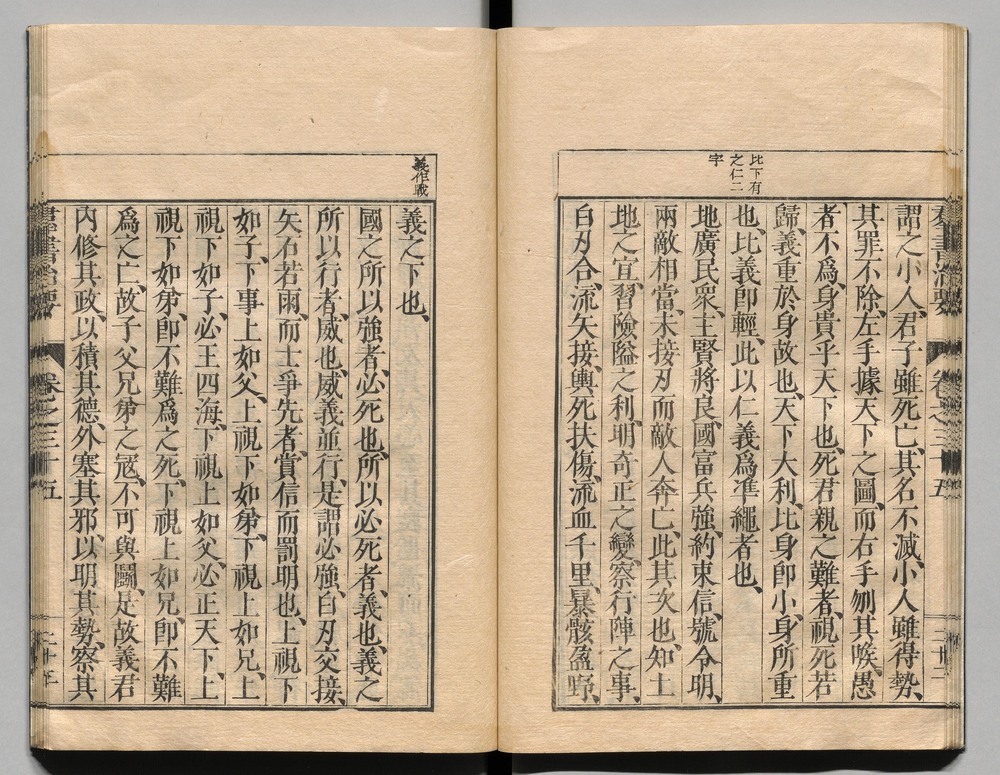 群書治要 卷之三十五
比下有
之仁二
字
謂之小人、君子雖死亡、其名不滅、小人雖得勢、
其罪不除、左手據天下之圖、而右手刎其喉、愚
者不爲、身貴乎天下也、死君親之難者、視死若
歸、義重於身故也、天下大利、比身卽小、身所重
也、比義卽輕、此以仁義爲準繩者也、
地廣民衆、主賢將良、國富兵強、約束信、號令明、
兩敵相當、未接刃而敵人奔亡、此其次也、知土
地之宜、習險隘之利、明奇正之變、察行陣之事、
白刃合、流矢接、輿死扶傷、流血千里、暴骸盈野、
義作戰
義之下也、
國之所以強者、必死也、所以必死者、義也、義之
所以行者、威也、威義並行、是謂必強、白刃交接、
矢石若雨、而士爭先者、賞信而罰明也、上視下
如子、下事上如父、上視下如弟、下視上如兄、上
視下如子、必王四海、下視上如父、必正天下、上
視下如弟、卽不難爲之死、下視上如兄、卽不難
爲之亡、故子父兄弟之冦、不可與鬬、是故義君
內修其政、以積其德、外塞其邪、以明其勢、察其
群書治要 卷之三十五